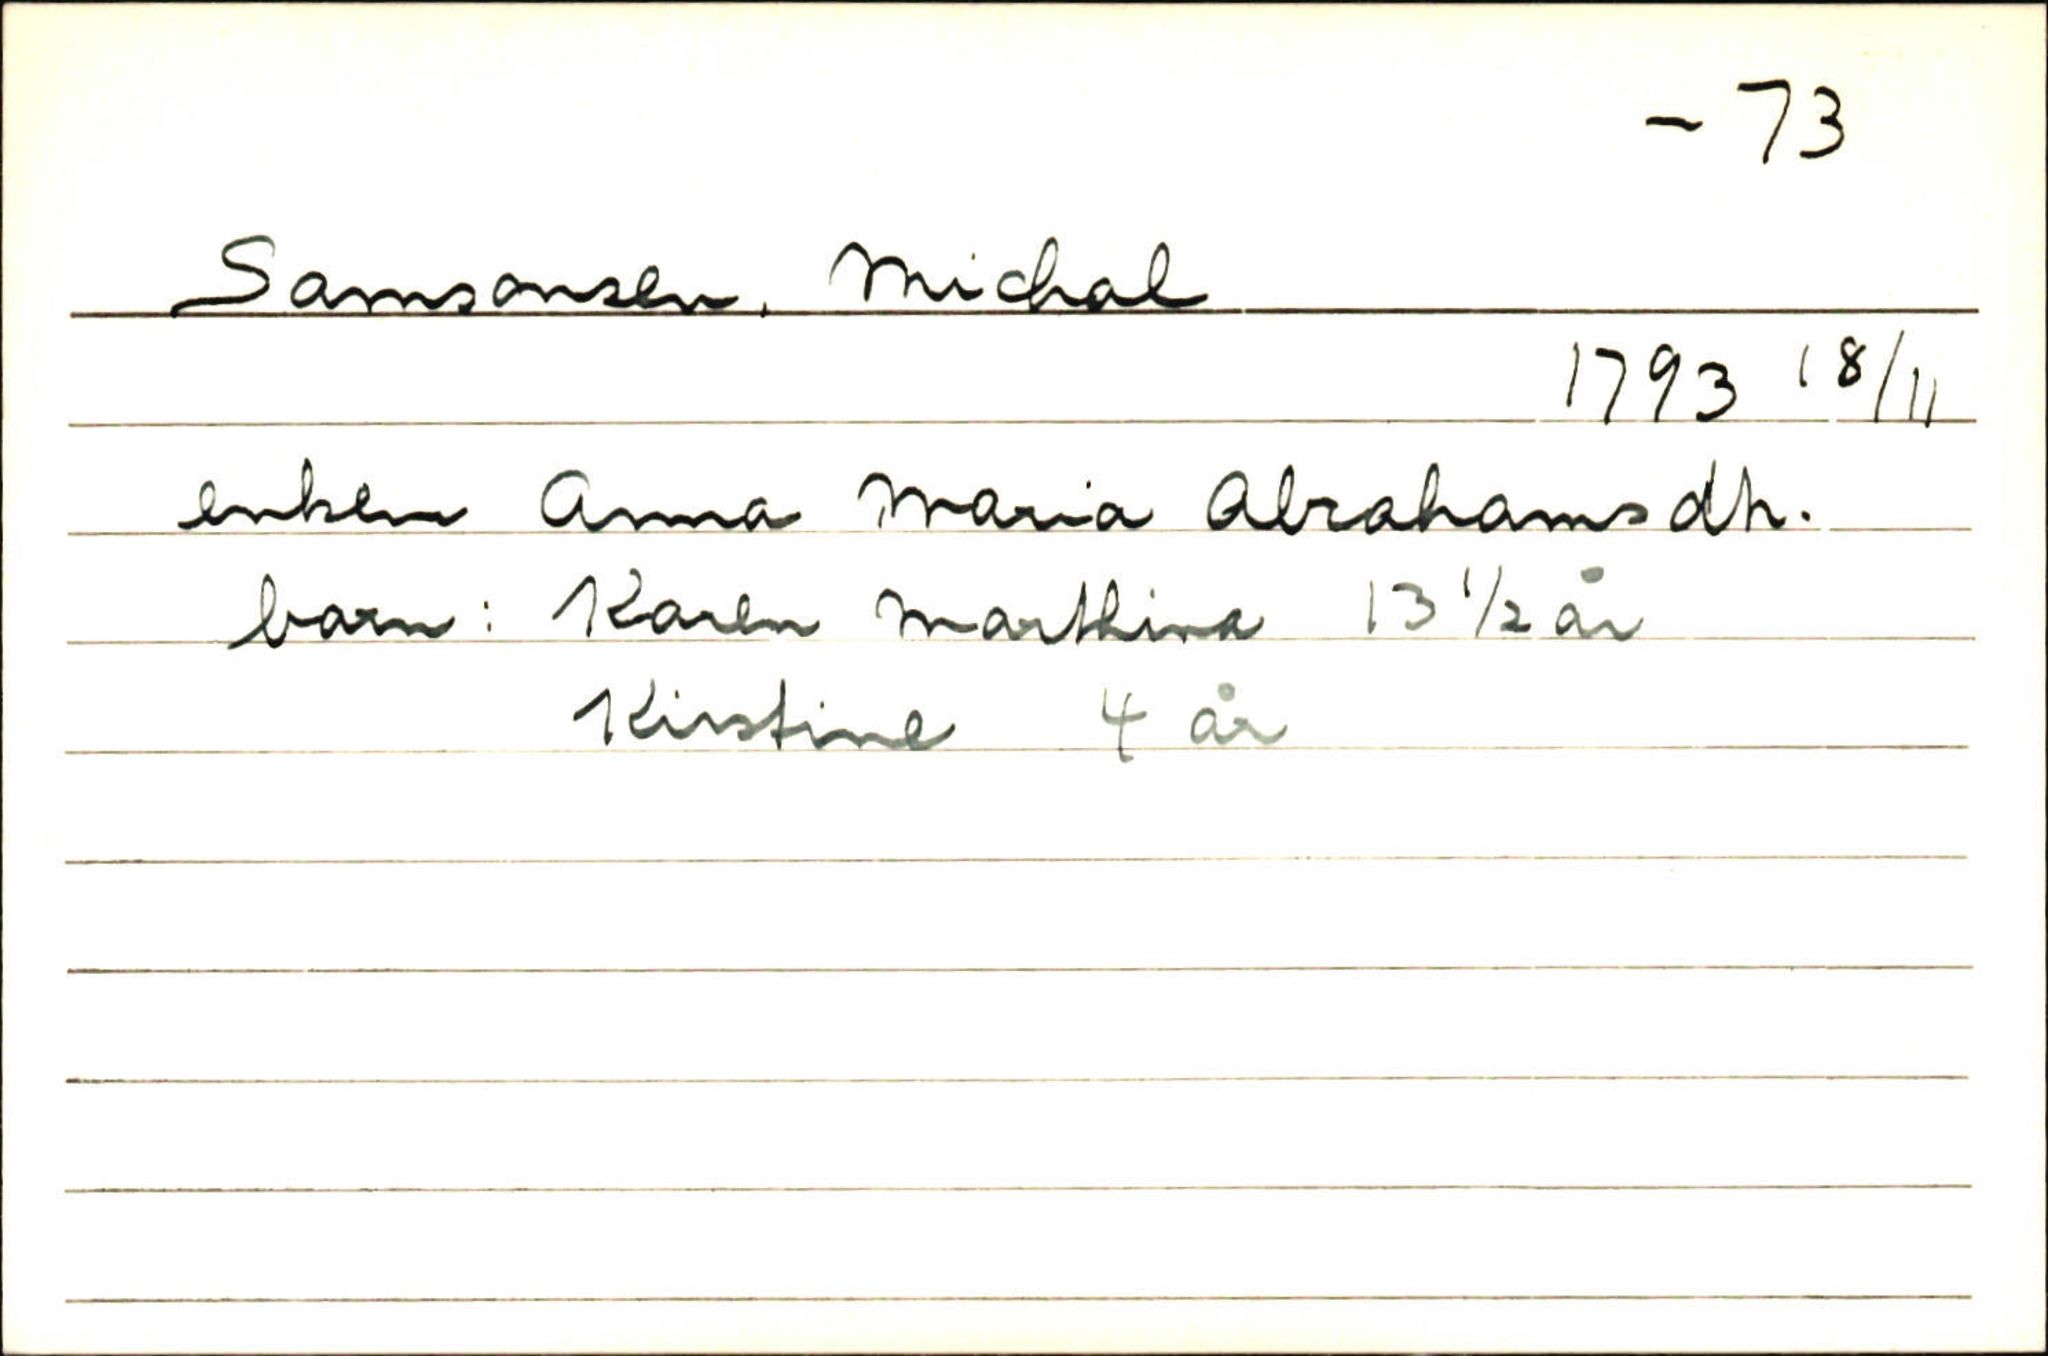 - 73
Samsonsen, Michal
1793 18/11
enken Anna Maria Abrahamsdtr.
barn: Karen Marthina 13 1/2 år
Kirstine 4 år